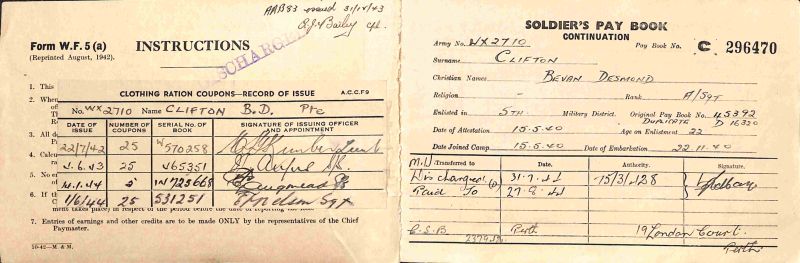 AAB83 issued 31/12/43
Form W.F. 5 (a)
(Reprinted August, 1942).
INSTRUCTIONS
DISCHARGED
1. This
2. When
CLOTHING RATION COUPONS—RECORD OF ISSUE A.C.C.F9
No. WX2710 NAME CLIFTON B.D. Pte
DATE OF ISSUE NUMBER OF COUPONS SERIAL No. OF BOOK SIGNATURE OF ISSUING OFFICER AND APPOINTMENT
22/7/42 25 W570258
1.6.43 25 165351
25 W723668
1/6/44 25 531251 Sgt
3. All d
4. Calcu
5. No er
6. If th
7. Entries of earnings and other credits are to be made ONLY by the representatives of the Chief
Paymaster.
10-42—M & M.
SOLDIER'S PAY BOOK
CONTINUATION
Army No. WX2710 Pay Book No. C 296470
Surname CLIFTON
Christian Names BEVAN DESMOND
Religion - Rank A/Sgt
Enlisted in 5TH Military District. Original Pay Book No. 45392
DUPLICATE D 16320
Date of Attestation 15.5.40 Age on Enlistment 22
Date Joined Camp 15.5.40 Date of Embarkation 22.11.40
M.D Transferred to Date. Authority. Signature.
Discharged 31.7.44 75/31428
Paid To 27.9.44
C.S.B. Perth 19 London Court.
Perth